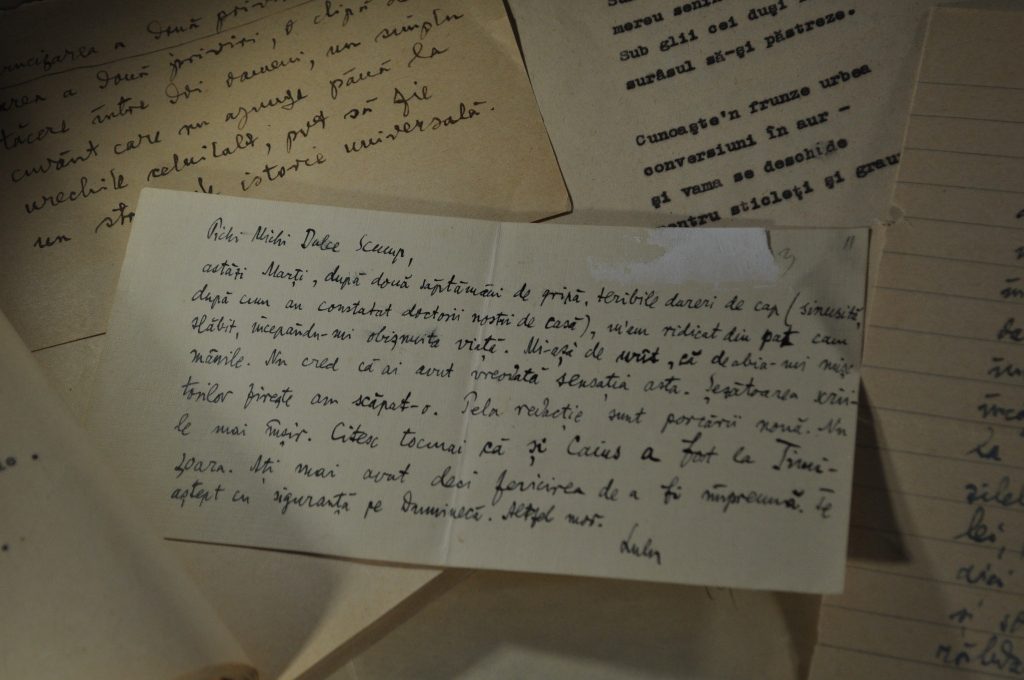 a două priviri
area a două priviri, o clipă de
tăcere între doi oameni, un simplu
cuvânt care nu ajunge până la
urechile celuilalt, pot să fie
un de istorie universală.
mereu seni
Sub glii cei duşi
surâsul să-şi păstreze.
Cunoaşte'n frunze urbea
conversiuni în aur -
şi vama se deschide
pentru sticleţi şi grau
11
Pichi Michi Dulce Scump,
astăzi Marţi, după două săptămâni de gripă, teribile dureri de cap (sinusită,
după cum au constatat doctorii noştri de casă), m'am ridicat din pat cam
slăbit, începându-mi obişnuita viaţă. Mi-aşa de urît, că deabia-mi mişc
mânile. Nu cred că ai avut vreodată senzaţia asta. Şezătoarea scrii-
torilor fireşte am scăpat-o. Pela redacţie sunt porcării nouă. Nu
le mai înşir. Citesc tocmai că şi Caius a fost la Timi-
şoara. Aţi mai avut deci fericirea de a fi împreună. Te
aştept cu siguranţă pe Duminecă. Altfel mor.
Lulu
la
zilele
lei,
dai
şi
răbda